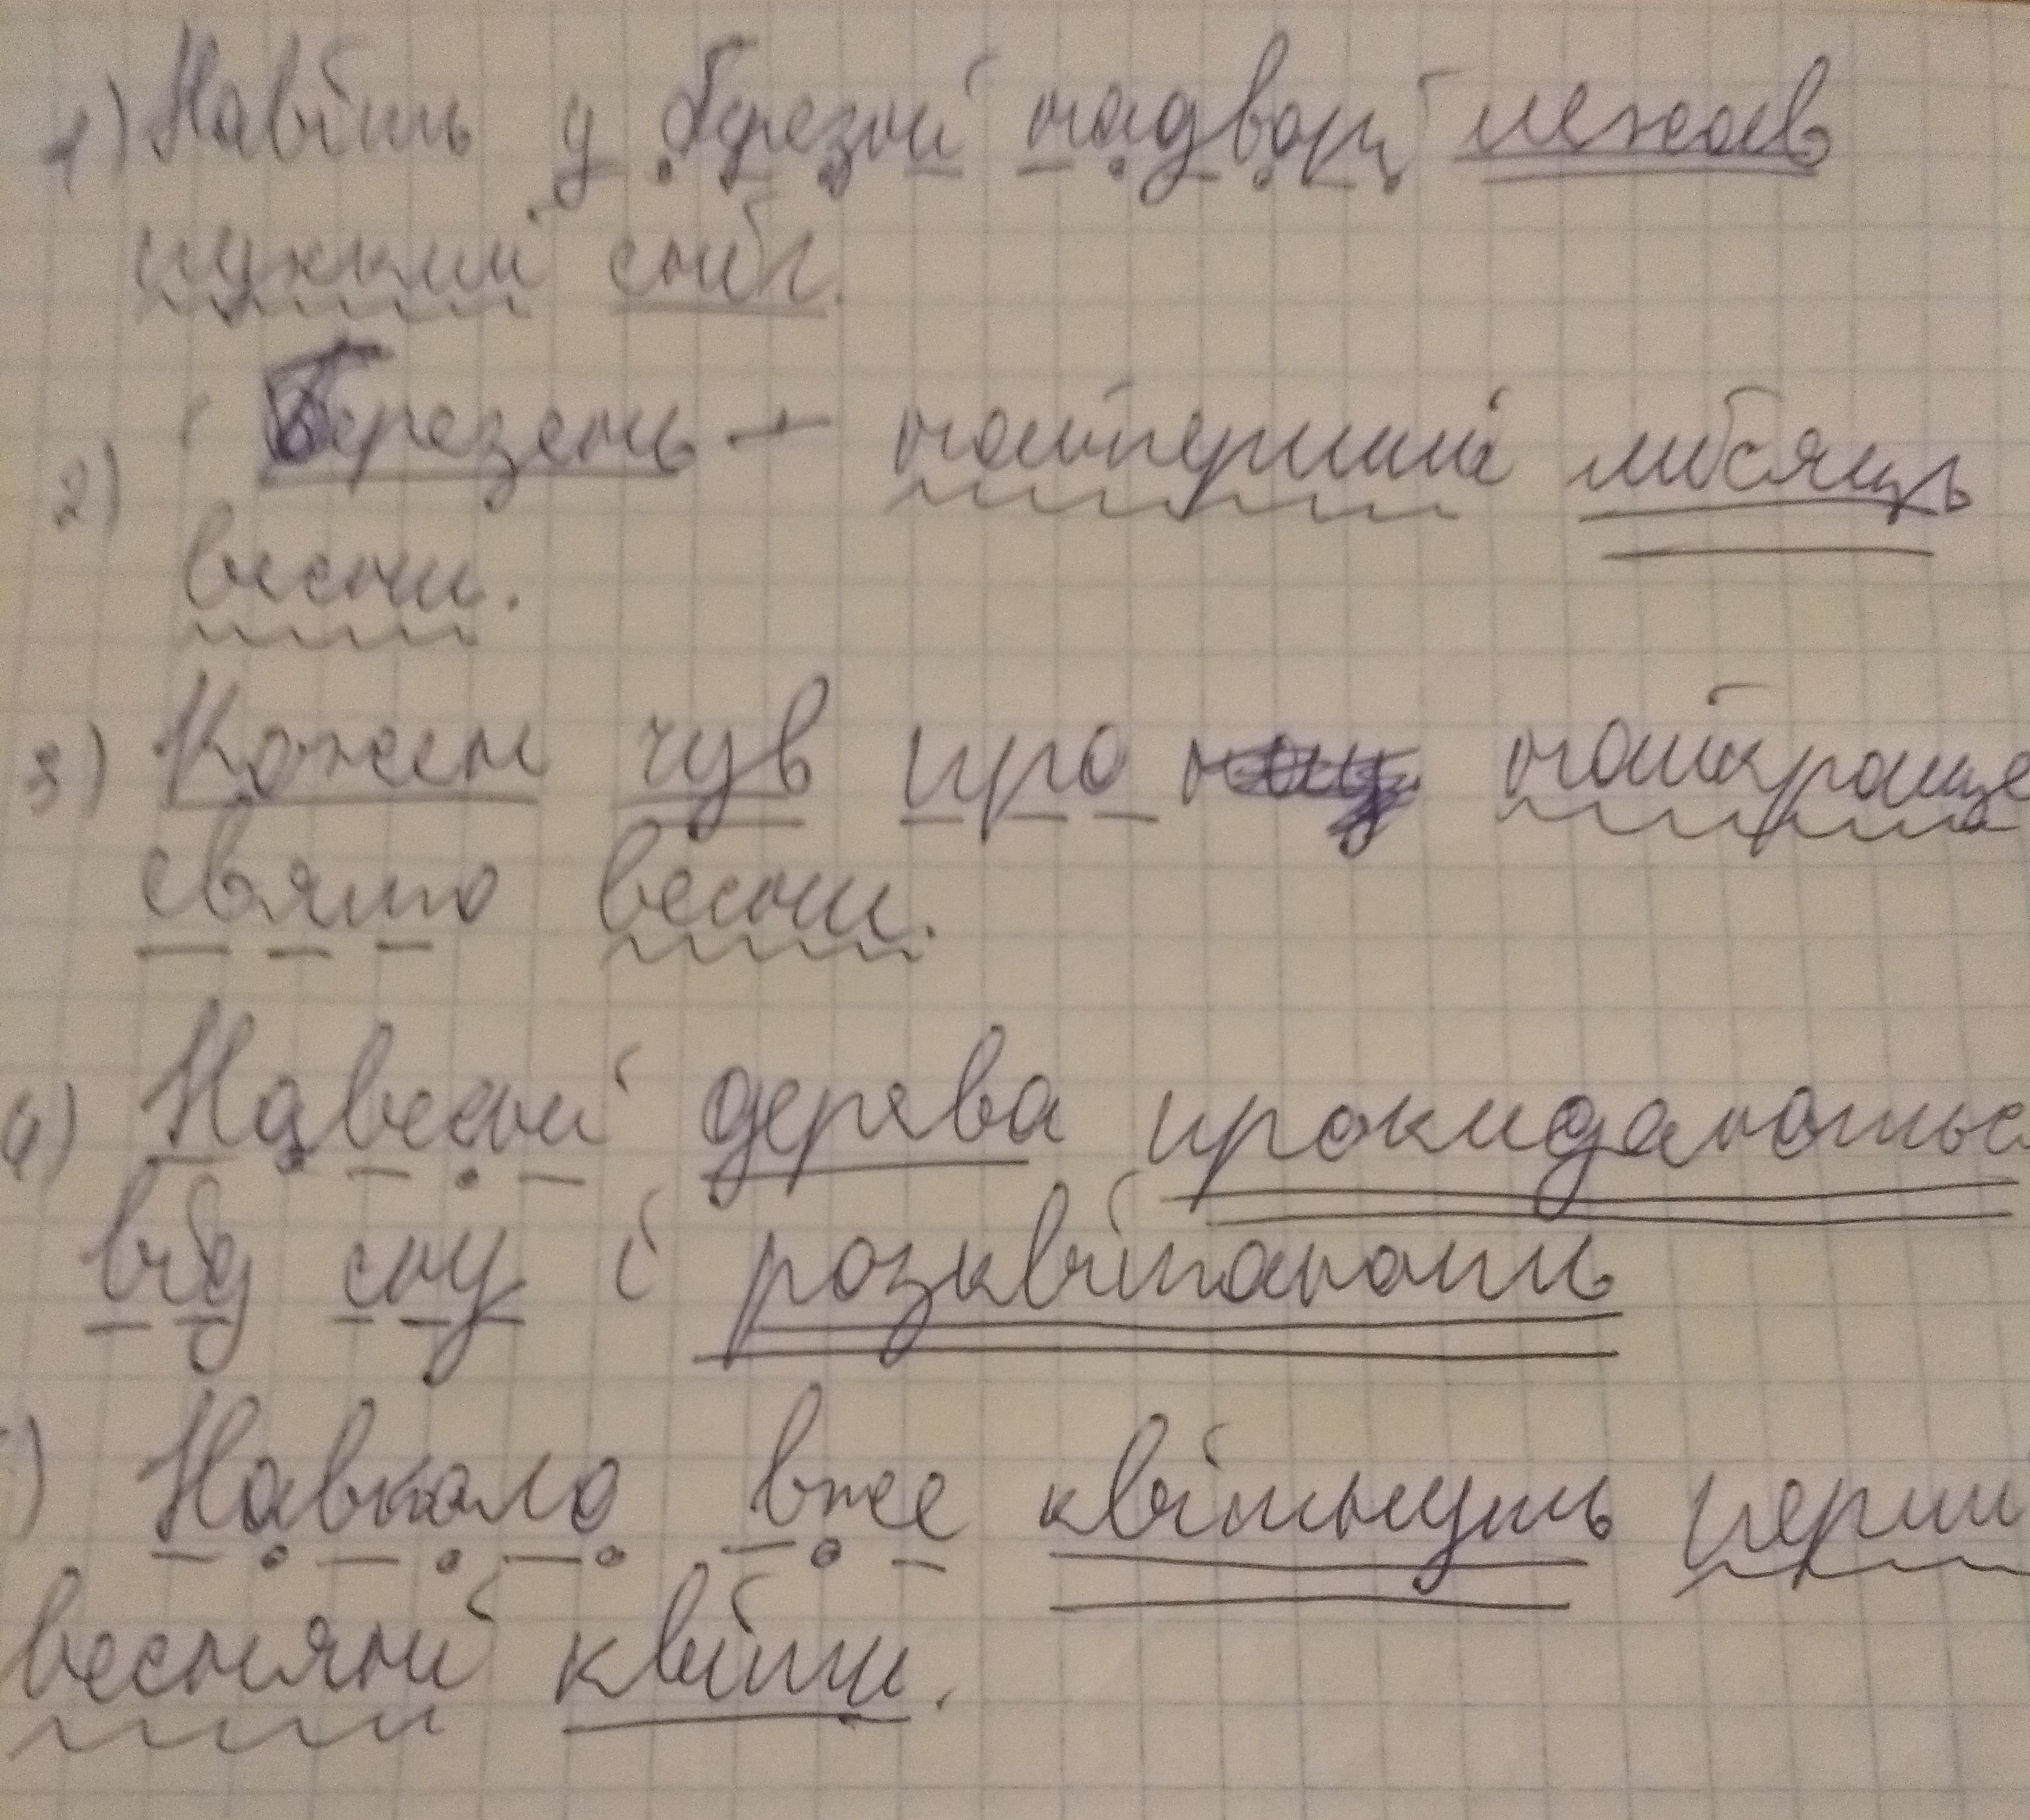 1) Навіть у березні надворі лежав
пухкий сніг.
2) Березень – найперший місяць
весни.
3) Кожен чув про найкраще
свято весни.
4) Навесні дерева прокидаються
від сну і розквітають
) Навколо вже квітнуть перші
весняні квіти.